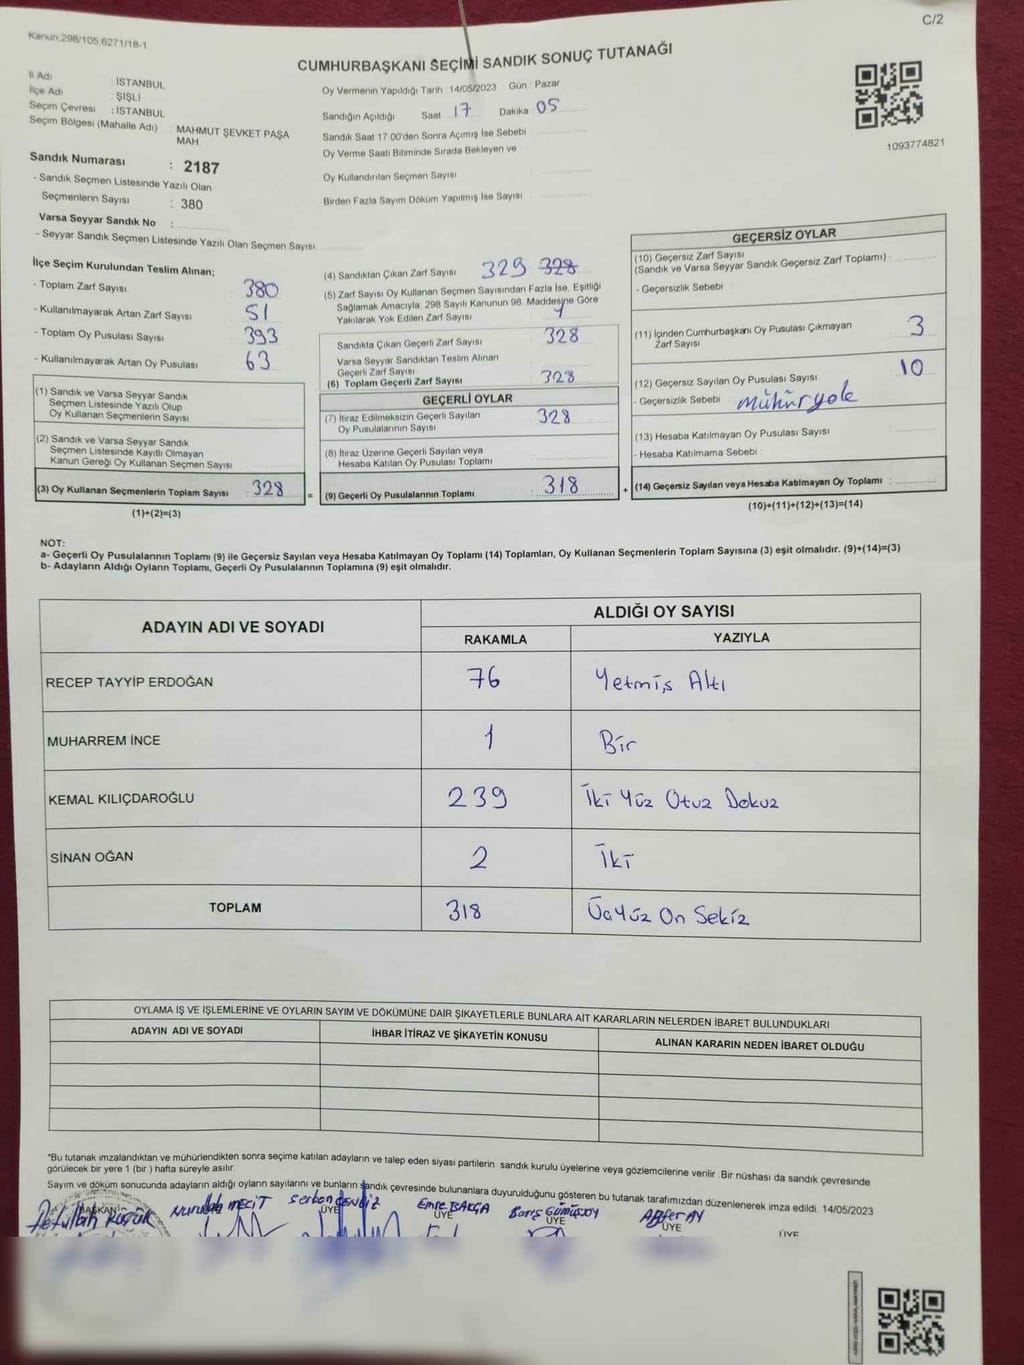 C/2
Kanun:298/105,6271/18-1
CUMHURBAŞKANI SEÇİMİ SANDIK SONUÇ TUTANAĞI
İl Adı : İSTANBUL
İlçe Adı : ŞİŞLİ
Seçim Çevresi : İSTANBUL
Seçim Bölgesi (Mahalle Adı) : MAHMUT ŞEVKET PAŞA MAH
Sandık Numarası : 2187
- Sandık Seçmen Listesinde Yazılı Olan
Seçmenlerin Sayısı : 380
Varsa Seyyar Sandık No :
- Seyyar Sandık Seçmen Listesinde Yazılı Olan Seçmen Sayısı:
Oy Vermenin Yapıldığı Tarih 14/05/2023 Gün : Pazar
Sandığın Açıldığı Saat 17 Dakika 05
Sandık Saat 17:00'den Sonra Açımış İse Sebebi
Oy Verme Saati Bitiminde Sırada Bekleyen ve
Oy Kullandırılan Seçmen Sayısı :
Birden Fazla Sayım Döküm Yapılmış İse Sayısı :
1093774821
İlçe Seçim Kurulundan Teslim Alınan;
- Toplam Zarf Sayısı : 380
- Kullanılmayarak Artan Zarf Sayısı : 51
- Toplam Oy Pusulası Sayısı : 393
- Kullanılmayarak Artan Oy Pusulası : 63
(1) Sandık ve Varsa Seyyar Sandık
Seçmen Listesinde Yazılı Olup
Oy Kullanan Seçmenlerin Sayısı :
(2) Sandık ve Varsa Seyyar Sandık
Seçmen Listesinde Kayıtlı Olmayan
Kanun Gereği Oy Kullanan Seçmen Sayısı :
(3) Oy Kullanan Seçmenlerin Toplam Sayısı : 328 =
(1)+(2)=(3)
(4) Sandıktan Çıkan Zarf Sayısı : 329 328
(5) Zarf Sayısı Oy Kullanan Seçmen Sayısından Fazla İse, Eşitliği
Sağlamak Amacıyla, 298 Sayılı Kanunun 98. Maddesine Göre
Yakılarak Yok Edilen Zarf Sayısı : 1
Sandıkta Çıkan Geçerli Zarf Sayısı : 328
Varsa Seyyar Sandıktan Teslim Alınan
Geçerli Zarf Sayısı :
(6) Toplam Geçerli Zarf Sayısı : 328
GEÇERLİ OYLAR
(7) İtiraz Edilmeksizin Geçerli Sayılan
Oy Pusulalarının Sayısı : 328
(8) İtiraz Üzerine Geçerli Sayılan veya
Hesaba Katılan Oy Pusulası Toplamı :
(9) Geçerli Oy Pusulalarının Toplamı : 318 +
GEÇERSİZ OYLAR
(10) Geçersiz Zarf Sayısı
(Sandık ve Varsa Seyyar Sandık Geçersiz Zarf Toplamı) :
- Geçersizlik Sebebi :
(11) İçinden Cumhurbaşkanı Oy Pusulası Çıkmayan
Zarf Sayısı : 3
(12) Geçersiz Sayılan Oy Pusulası Sayısı : 10
- Geçersizlik Sebebi : mühür yok
(13) Hesaba Katılmayan Oy Pusulası Sayısı :
- Hesaba Katılmama Sebebi :
(14) Geçersiz Sayılan veya Hesaba Katılmayan Oy Toplamı :
(10)+(11)+(12)+(13)=(14)
NOT:
a- Geçerli Oy Pusulalarının Toplamı (9) ile Geçersiz Sayılan veya Hesaba Katılmayan Oy Toplamı (14) Toplamları, Oy Kullanan Seçmenlerin Toplam Sayısına (3) eşit olmalıdır. (9)+(14)=(3)
b- Adayların Aldığı Oyların Toplamı, Geçerli Oy Pusulalarının Toplamına (9) eşit olmalıdır.
ADAYIN ADI VE SOYADI ALDIĞI OY SAYISI
RAKAMLA YAZIYLA
RECEP TAYYİP ERDOĞAN 76 Yetmiş Altı
MUHARREM İNCE 1 Bir
KEMAL KILIÇDAROĞLU 239 İki Yüz Otuz Dokuz
SİNAN OĞAN 2 İki
TOPLAM 318 ÜçYüz On Sekiz
OYLAMA İŞ VE İŞLEMLERİNE VE OYLARIN SAYIM VE DÖKÜMÜNE DAİR ŞİKAYETLERLE BUNLARA AİT KARARLARIN NELERDEN İBARET BULUNDUKLARI
ADAYIN ADI VE SOYADI İHBAR İTİRAZ VE ŞİKAYETİN KONUSU ALINAN KARARIN NEDEN İBARET OLDUĞU
*Bu tutanak imzalandıktan ve mühürlendikten sonra seçime katılan adayların ve talep eden siyasi partilerin sandık kurulu üyelerine veya gözlemcilerine verilir .Bir nüshası da sandık çevresinde
görülecek bir yere 1 (bir ) hafta süreyle asılır.
Sayım ve döküm sonucunda adayların aldığı oyların sayılarını ve bunların sandık çevresinde bulunanlara duyurulduğunu gösteren bu tutanak tarafımızdan düzenlenerek imza edildi. 14/05/2023
BAŞKAN ÜYE ÜYE ÜYE ÜYE ÜYE
Küçük MECİT Emre Barış